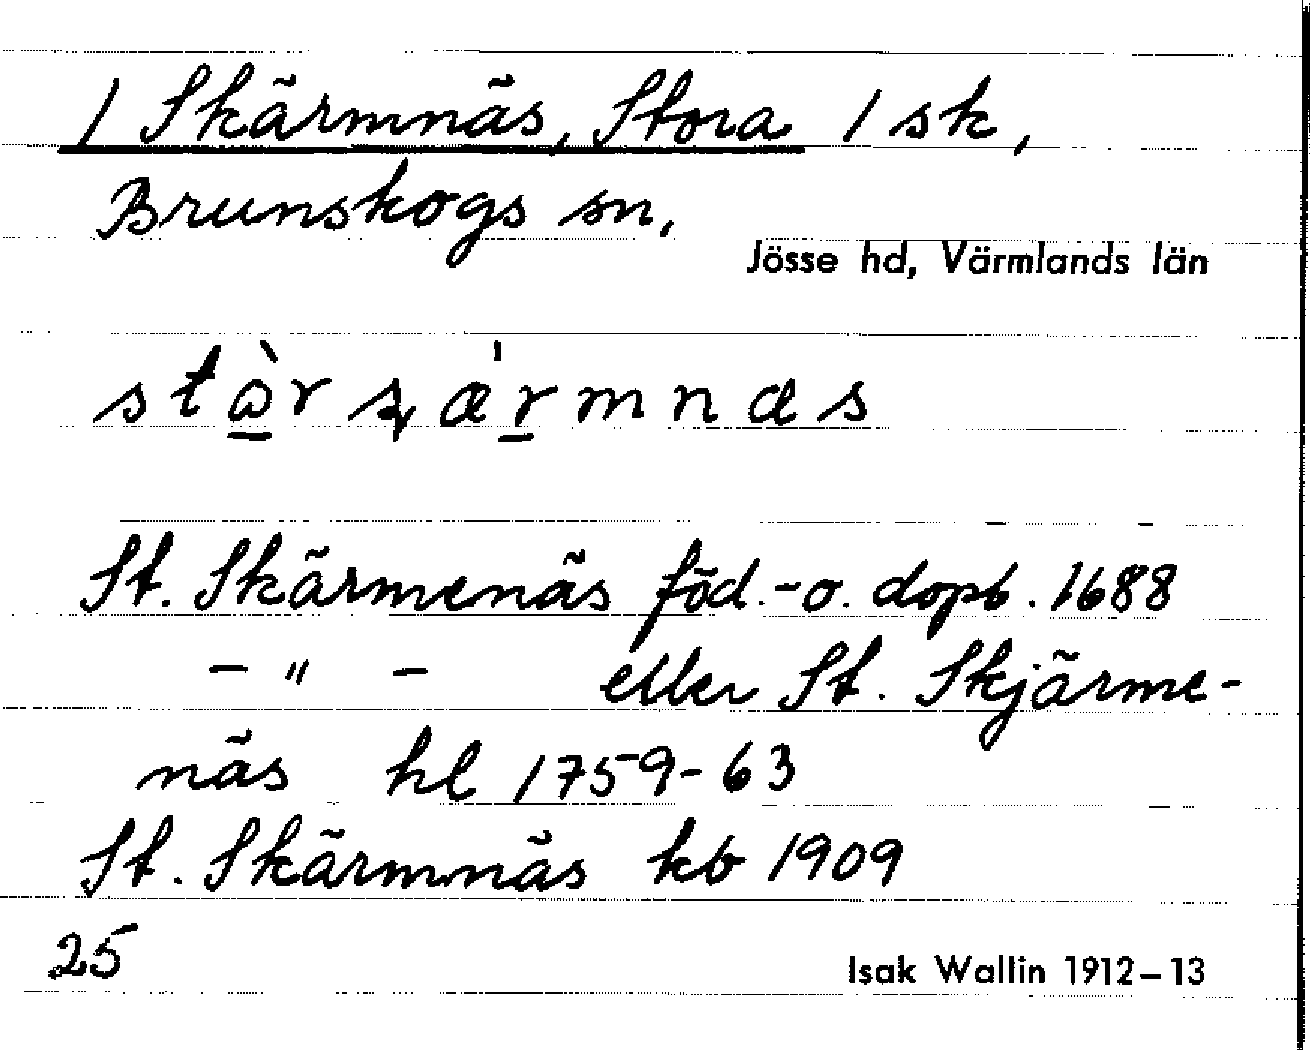 / Skärmnäs, Stora / sk,
Brunskogs sn,
Jösse hd, Värmlands län
St. Skärmenäs föd.-o. dopb. 1688
– " – eller St. Skjärme-
näs hl 1759-63
St. Skärmnäs kb 1909
25
Isak Wallin 1912–13